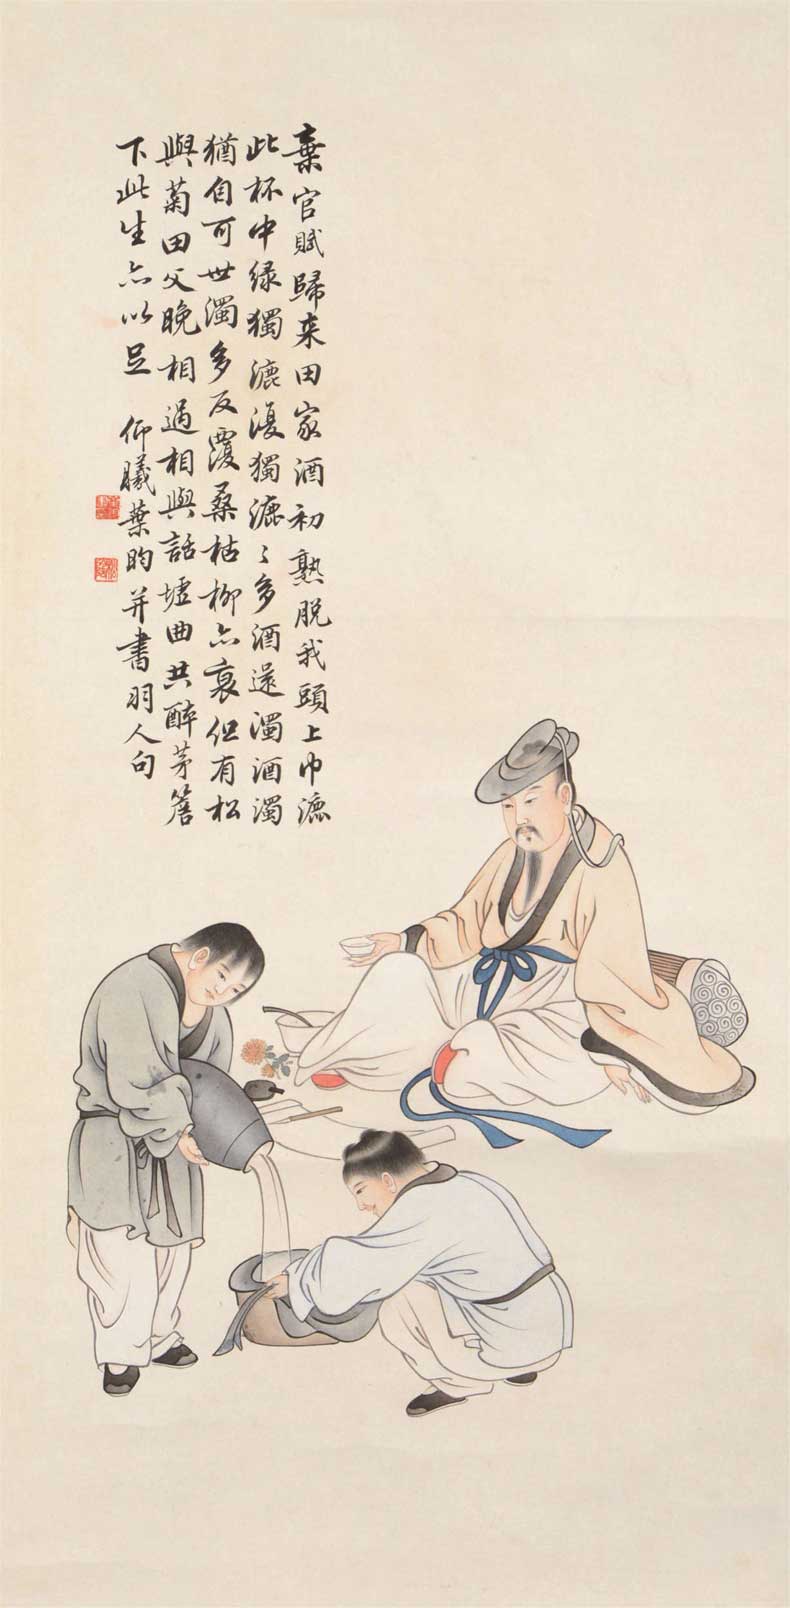 棄官賦歸来田家酒初熟脱我頭上巾漉
此杯中緑獨漉復獨漉〻多酒還濁酒濁
猶自可世濁多反覆桑枯柳亦衰但有松
與菊田父晚相過相與話墟曲共醉茅簷
下此生亦以足 仰曦葉昀并書羽人句